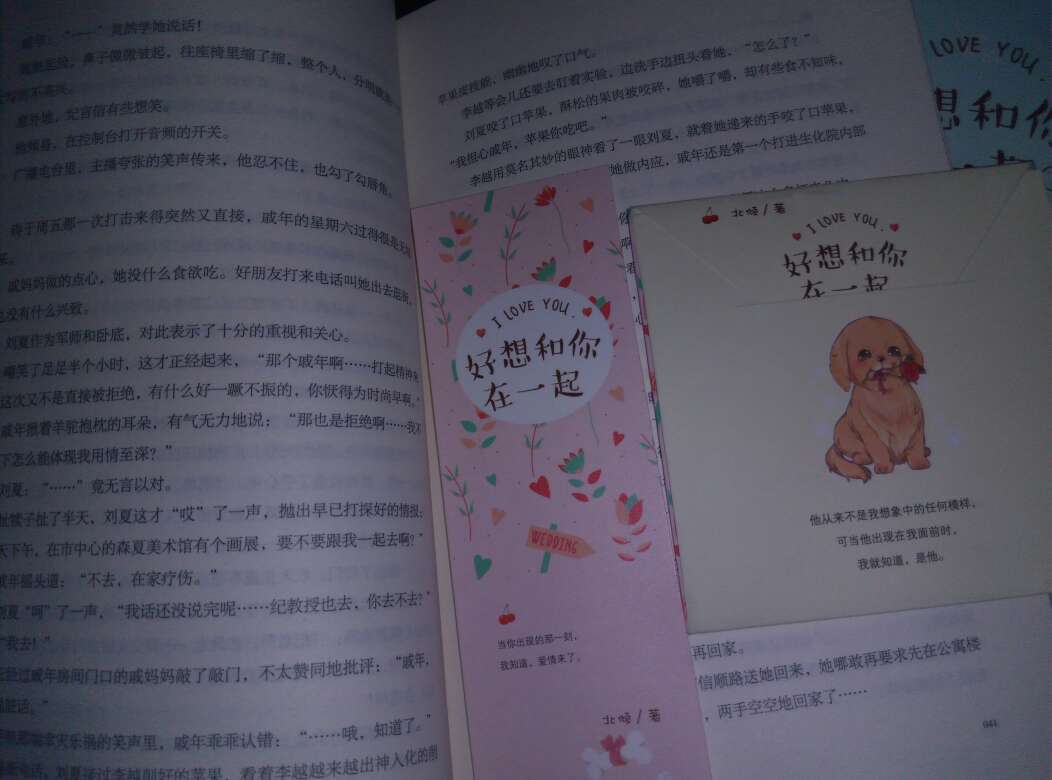 戚年：“……”竟然学她说话！
意外地，纪言信有些想笑。
在控制台打开音频的开关。
广播电台里，主播夸张的笑声传来，他忍不住，也勾了勾唇角。
由于周五那一次打击来得突然又直接，戚年的星期六过得很是无精
戚妈妈做的点心，她没什么食欲吃。好朋友打来电话叫她出去逛街，
也没有什么兴致。
刘夏作为军师和卧底，对此表示了十分的重视和关心。
嘲笑了足足半个小时，这才正经起来，“那个戚年啊……打起精神来
这次又不是直接被拒绝，有什么好一蹶不振的，你恹得为时尚早啊。”
戚年揪着羊驼抱枕的耳朵，有气无力地说：“那也是拒绝啊……我不
下怎么能体现我用情至深？”
刘夏：“……”竟无言以对。
扯犊子扯了半天，刘夏这才“哎”了一声，抛出早已打探好的情报：
天下午，在市中心的森夏美术馆有个画展，要不要跟我一起去啊？”
戚年摇头道：“不去，在家疗伤。”
刘夏“呵”了一声，“我话还没说完呢……纪教授也去，你去不去？”
“我去！”
经过戚年房间门口的戚妈妈敲了敲门，不太赞同地批评：“戚年，
脏话。”
灾乐祸的笑声里，戚年乖乖认错：“……哦，知道了。”
刘夏接过李越削好的苹果，看着李越越来越出神入化的削
苹果皮技能，幽幽地叹了口气。
李越等会儿还要去盯着实验，边洗手边扭头看她，“怎么了？”
刘夏咬了口苹果，酥松的果肉被咬碎，她嚼了嚼，却有些食不知味，
“我很心疼戚年，苹果你吃吧。”
李越用莫名其妙的眼神看了一眼刘夏，就着她递来的手咬了口苹果，
她做内应，戚年还是第一个打进生化院内部
再回家。
信顺路送她回来，她哪敢再要求先在公寓楼
，两手空空地回家了……
041
I LOVE YOU.
好想和你
在一起
WEDDING
当你出现的那一刻，
我知道，爱情来了。
北倾/著
北倾/著
I LOVE YOU.
好想和你
在一起
他从来不是我想象中的任何模样，
可当他出现在我面前时，
我就知道，是他。
LOVE YOU.
想和你